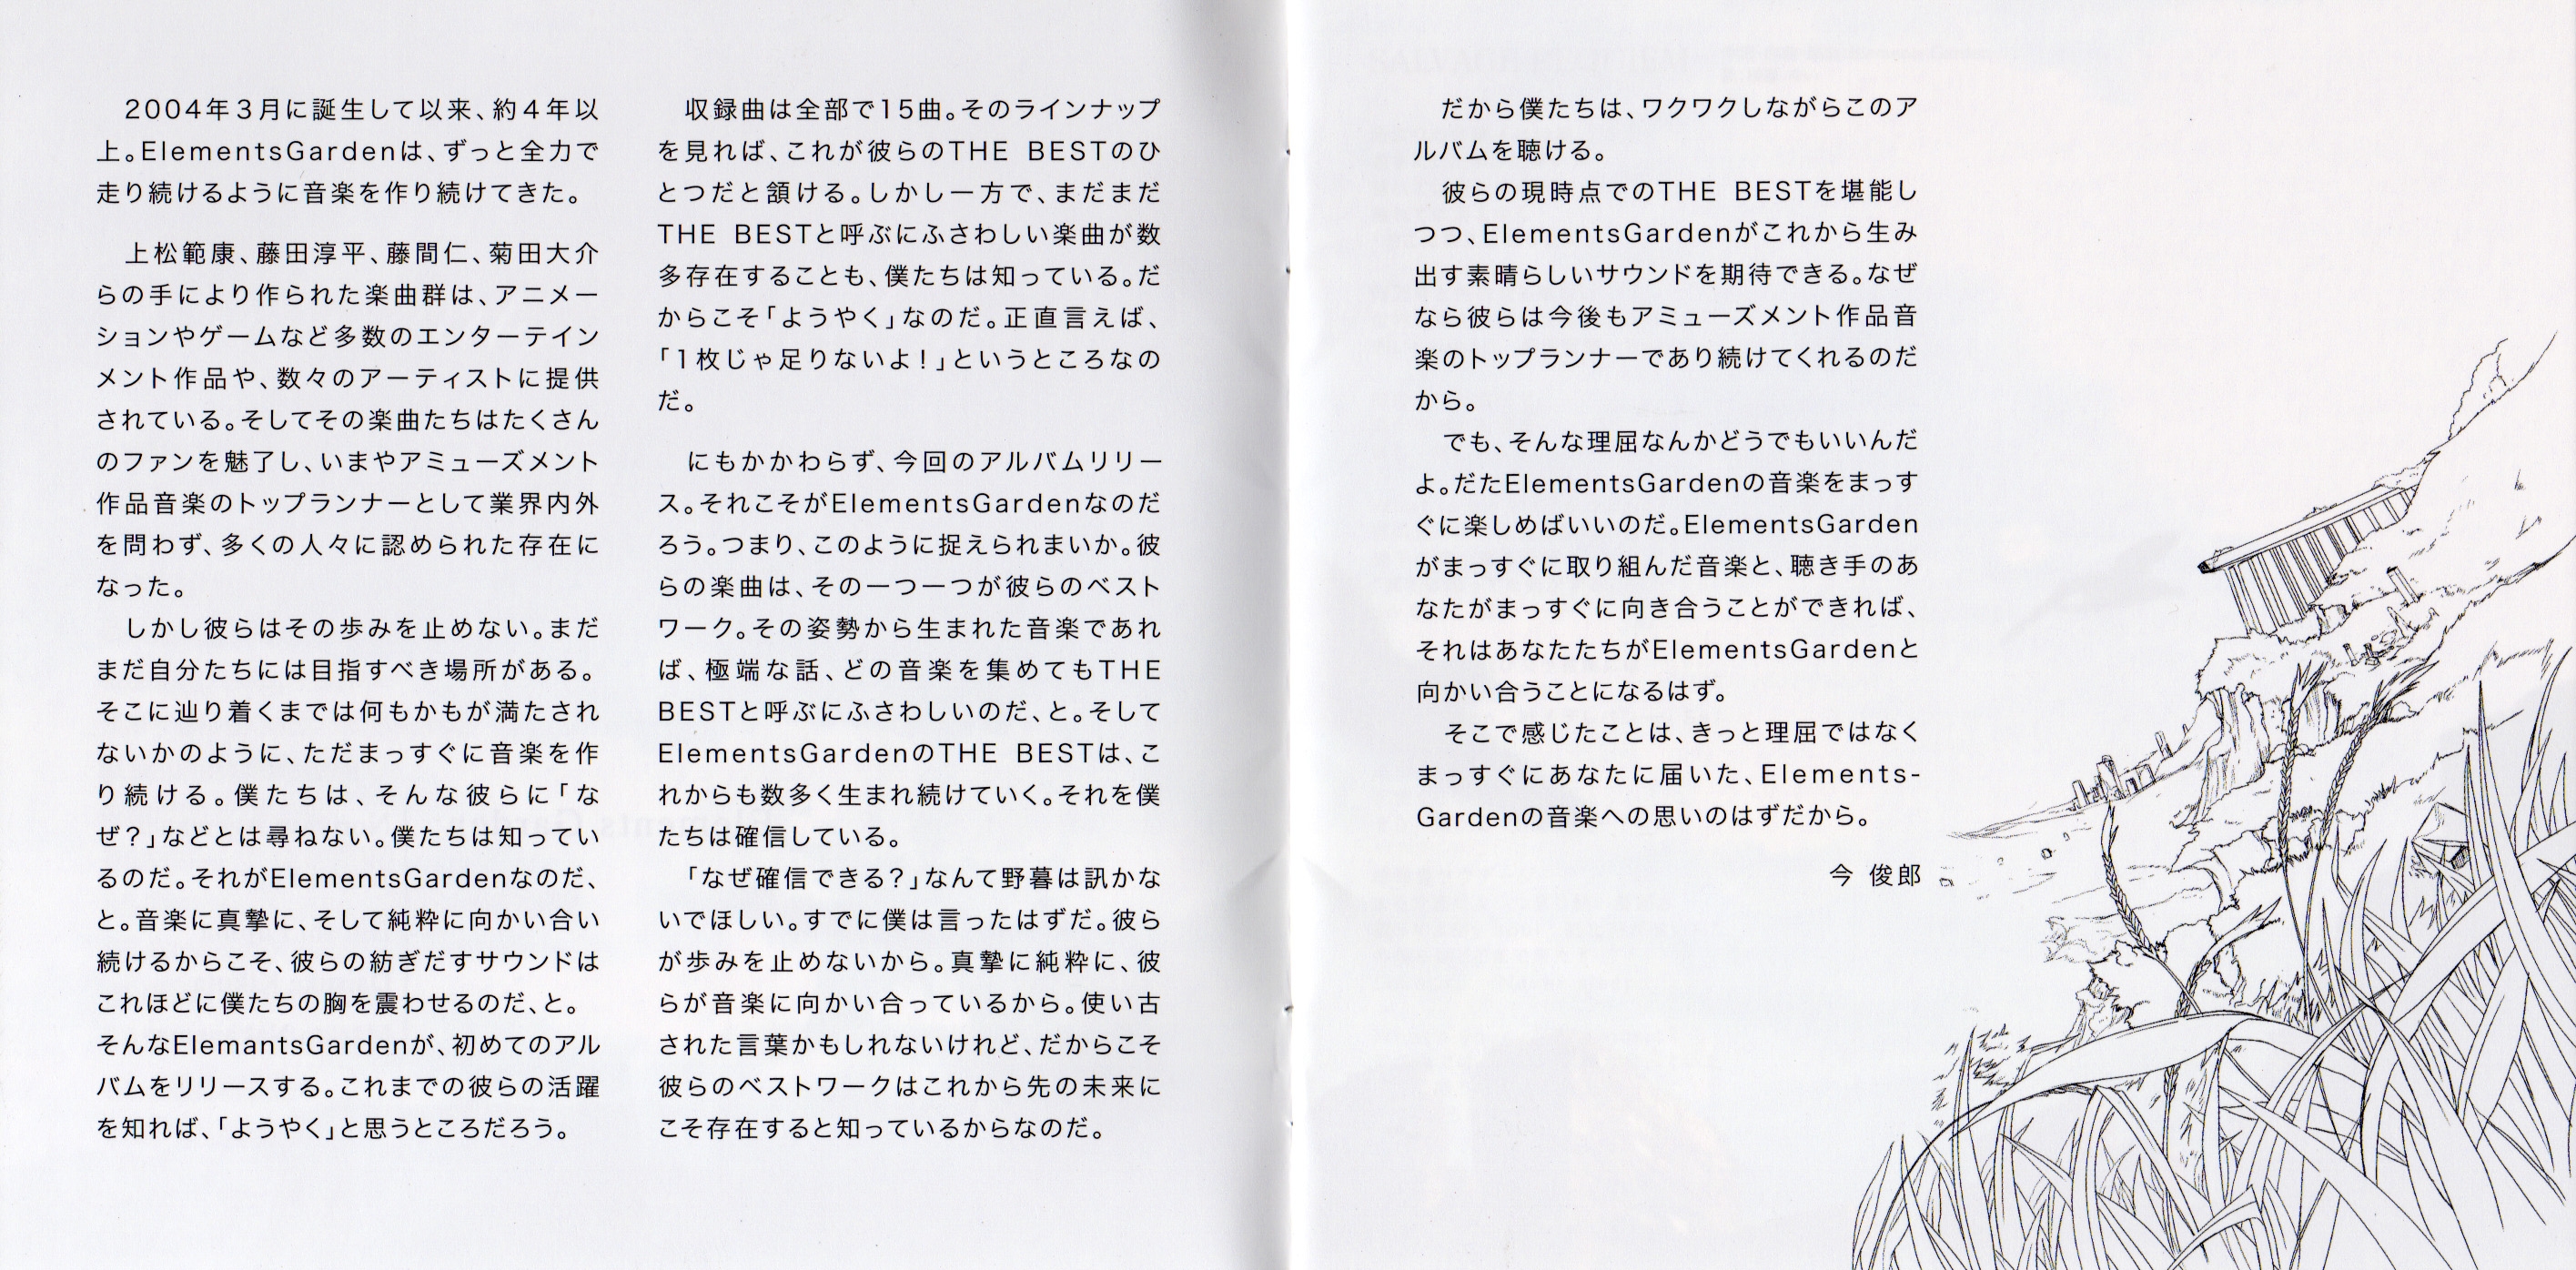 2004年3月に誕生して以来、約4年以
上。ElementsGardenは、ずっと全力で
走り続けるように音楽を作り続けてきた。
上松範康、藤田淳平、藤間仁、菊田大介
らの手により作られた楽曲群は、アニメー
ションやゲームなど多数のエンターテイン
メント作品や、数々のアーティストに提供
されている。そしてその楽曲たちはたくさん
のファンを魅了し、いまやアミューズメント
作品音楽のトップランナーとして業界内外
を問わず、多くの人々に認められた存在に
なった。
しかし彼らはその歩みを止めない。まだ
まだ自分たちには目指すべき場所がある。
そこに辿り着くまでは何もかもが満たされ
ないかのように、ただまっすぐに音楽を作
り続ける。僕たちは、そんな彼らに「な
ぜ?」などとは尋ねない。僕たちは知ってい
るのだ。それがElementsGardenなのだ、
と。音楽に真摯に、そして純粋に向かい合い
続けるからこそ、彼らの紡ぎだすサウンドは
これほどに僕たちの胸を震わせるのだ、と。
そんなElemantsGardenが、初めてのアル
バムをリリースする。これまでの彼らの活躍
を知れば、「ようやく」と思うところだろう。
収録曲は全部で15曲。そのラインナップ
を見れば、これが彼らのTHE BESTのひ
とつだと頷ける。しかし一方で、まだまだ
THE BESTと呼ぶにふさわしい楽曲が数
多存在することも、僕たちは知っている。だ
からこそ「ようやく」なのだ。正直言えば、
「1枚じゃ足りないよ!」というところなの
だ。
にもかかわらず、今回のアルバムリリー
ス。それこそがElementsGardenなのだ
ろう。つまり、このように捉えられまいか。彼
らの楽曲は、その一つ一つが彼らのベスト
ワーク。その姿勢から生まれた音楽であれ
ば、極端な話、どの音楽を集めてもTHE
BESTと呼ぶにふさわしいのだ、と。そして
ElementsGardenのTHE BESTは、こ
れからも数多く生まれ続けていく。それを僕
たちは確信している。
「なぜ確信できる?」なんて野暮は訊かな
いでほしい。すでに僕は言ったはずだ。彼ら
が歩みを止めないから。真摯に純粋に、彼
らが音楽に向かい合っているから。使い古
された言葉かもしれないけれど、だからこそ
彼らのベストワークはこれから先の未来に
こそ存在すると知っているからなのだ。
だから僕たちは、ワクワクしながらこのア
ルバムを聴ける。
彼らの現時点でのTHE BESTを堪能し
つつ、ElementsGardenがこれから生み
出す素晴らしいサウンドを期待できる。なぜ
なら彼らは今後もアミューズメント作品音
楽のトップランナーであり続けてくれるのだ
から。
でも、そんな理屈なんかどうでもいいんだ
よ。だたElementsGardenの音楽をまっす
ぐに楽しめばいいのだ。ElementsGarden
がまっすぐに取り組んだ音楽と、聴き手のあ
なたがまっすぐに向き合うことができれば、
それはあなたたちがElementsGardenと
向かい合うことになるはず。
そこで感じたことは、きっと理屈ではなく
まっすぐにあなたに届いた、Elements-
Gardenの音楽への思いのはずだから。
今 俊郎